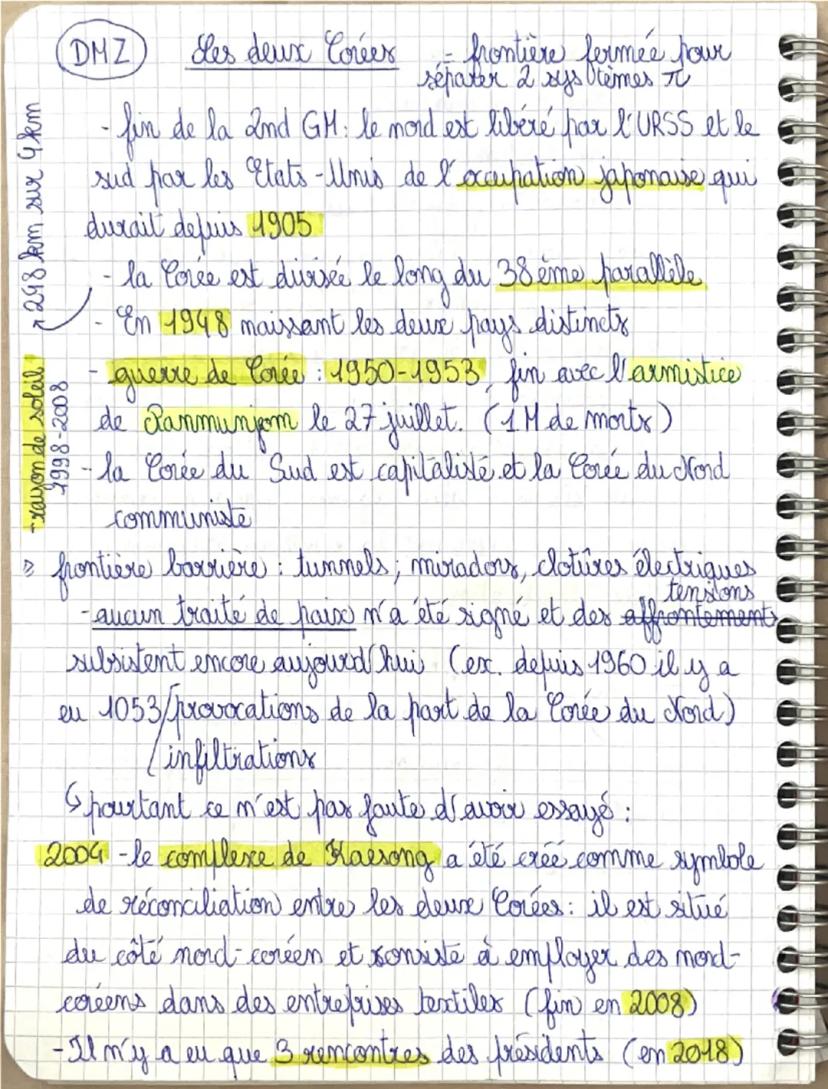 DMZ Les deux Corées = frontière fermée pour
séparer 2 systèmes π
- fin de la 2nd GM : le nord est libéré par l'URSS et le
sud par les Etats-Unis de l'occupation japonaise qui
durait depuis 1905
- la Corée est divisée le long du 38ème parallèle
- En 1948 naissant les deux pays distincts
- guerre de Corée : 1950-1953, fin avec l'armistice
de Panmunjom le 27 juillet. (1M de morts)
- la Corée du Sud est capitaliste et la Corée du Nord
communiste
248 km sur 4 km
- rayon de soleil
1998-2008
frontière barrière : tunnels, miradors, clotûres électriques
tensions
- aucun traité de paix n'a été signé et des affrontements
subsistent encore aujourd'hui (ex. depuis 1960 il y a
eu 1053/provocations de la part de la Corée du Nord)
/infiltrations
↳ pourtant ce n'est pas faute d'avoir essayé :
2004 - le complexe de Kaesong a été créé comme symbole
de réconciliation entre les deux Corées : il est situé
du côté nord-coréen et consiste à employer des nord-
coréens dans des entreprises textiles (fin en 2008)
- Il n'y a eu que 3 rencontres des présidents (en 2018)